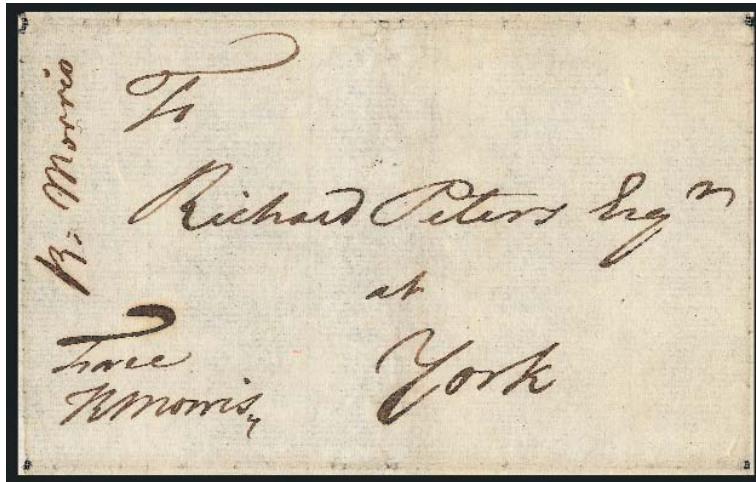 R: Morris
To
Richard Peters Esqr
at
York
Free
RMorris